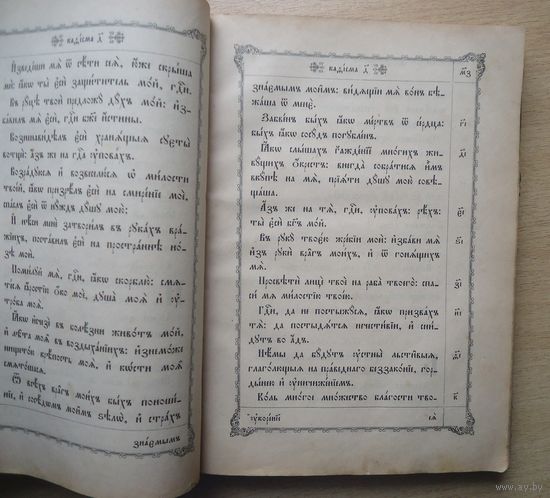 каѳі́сма д҃
И҆зведе́ши мѧ̀ ѿ сѣ́ти сеѧ̀, ю҆́же скры́ша
мѝ: ꙗ҆́кѡ ты̀ є҆сѝ защи́титель мо́й, гдⷭ҇и.
Въ рꙋ́цѣ твоѝ предложꙋ̀ дꙋ́хъ мо́й: и҆з-
ба́вилъ мѧ̀ є҆сѝ, гдⷭ҇и бж҃е и҆́стины.
Возненави́дѣлъ є҆сѝ хранѧ́щыѧ сꙋєты̑
вотщѐ: а҆́зъ же на гдⷭ҇а ᲂу҆пова́хъ.
Возра́дꙋюсѧ и҆ возвеселю́сѧ ѡ҆ ми́лости
твое́й, ꙗ҆́кѡ призрѣ́лъ є҆сѝ на смире́нїе моѐ,
спа́слъ є҆сѝ ѿ нꙋ́ждъ дꙋ́шꙋ мою̀:
И҆ нѣ́си менѐ затвори́лъ въ рꙋка́хъ вра́-
жїихъ, поста́вилъ є҆сѝ на простра́ннѣ но́-
зѣ моѝ.
Поми́лꙋй мѧ̀, гдⷭ҇и, ꙗ҆́кѡ скорблю̀: смѧ-
те́сѧ ꙗ҆́ростїю ѻ҆́ко моѐ, дꙋша̀ моѧ̀ и҆ ᲂу҆-
тро́ба моѧ̀.
Ꙗ҆́кѡ и҆счезѐ въ болѣ́зни живо́тъ мо́й,
и҆ лѣ̑та моѧ̑ въ воздыха́нїихъ: и҆знемо́же
нището́ю крѣ́пость моѧ̀, и҆ кѡ́сти моѧ̑
смѧто́шасѧ.
Ѿ всѣ́хъ вра̑гъ мои́хъ бы́хъ поноше́-
нїе, и҆ сосѣ́дѡмъ мои̑мъ ѕѣлѡ̀, и҆ стра́хъ
зна́ємымъ
каѳі́сма д҃
м҃з
зна́ємымъ мои̑мъ: ви́дѧщїи мѧ̀ во́нъ бѣ-
жа́ша ѿ менє̀.
Забве́нъ бы́хъ ꙗ҆́кѡ ме́ртвъ ѿ се́рдца:
бы́хъ ꙗ҆́кѡ сосꙋ́дъ погꙋбле́нъ.
г҃і
Ꙗ҆́кѡ слы́шахъ гажде́нїе мно́гихъ жи-
вꙋ́щихъ ѡ҆́крестъ: внегда̀ собра́тисѧ и҆̀мъ
вкꙋ́пѣ на мѧ̀, прїѧ́ти дꙋ́шꙋ мою̀ совѣ-
ща́ша.
д҃і
А҆́зъ же на тѧ̀, гдⷭ҇и, ᲂу҆пова́хъ: рѣ́хъ:
ты̀ є҆сѝ бг҃ъ мо́й.
є҃і
Въ рꙋкꙋ̀ твоє́ю жре́бїи моѝ: и҆зба́ви мѧ̀
и҆з̾ рꙋкѝ вра̑гъ мои́хъ, и҆ ѿ гонѧ́щихъ
мѧ̀.
ѕ҃і
Просвѣтѝ лицѐ твоѐ на раба̀ твоего̀: спа-
си́ мѧ ми́лостїю твое́ю.
з҃і
Гдⷭ҇и, да не постыжꙋ́сѧ, ꙗ҆́кѡ призва́хъ
тѧ̀: да постыдѧ́тсѧ нечести́вїи, и҆ сни́-
дꙋтъ во а҆́дъ.
и҃і
Нѣ̑мы да бꙋ́дꙋтъ ᲂу҆стны̀ льсти̑выѧ,
глагѡ́лющыѧ на првⷣнаго беззако́нїе, гор-
ды́нею и҆ ᲂу҆ничиже́нїемъ.
ѳ҃і
Ко́ль мно́гое мно́жество бла́гости тво-
к҃
еѧ̀